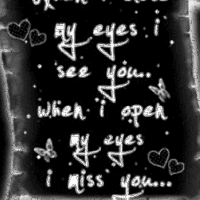 my eyes i
see you..
when i open
my eyes
i miss you...